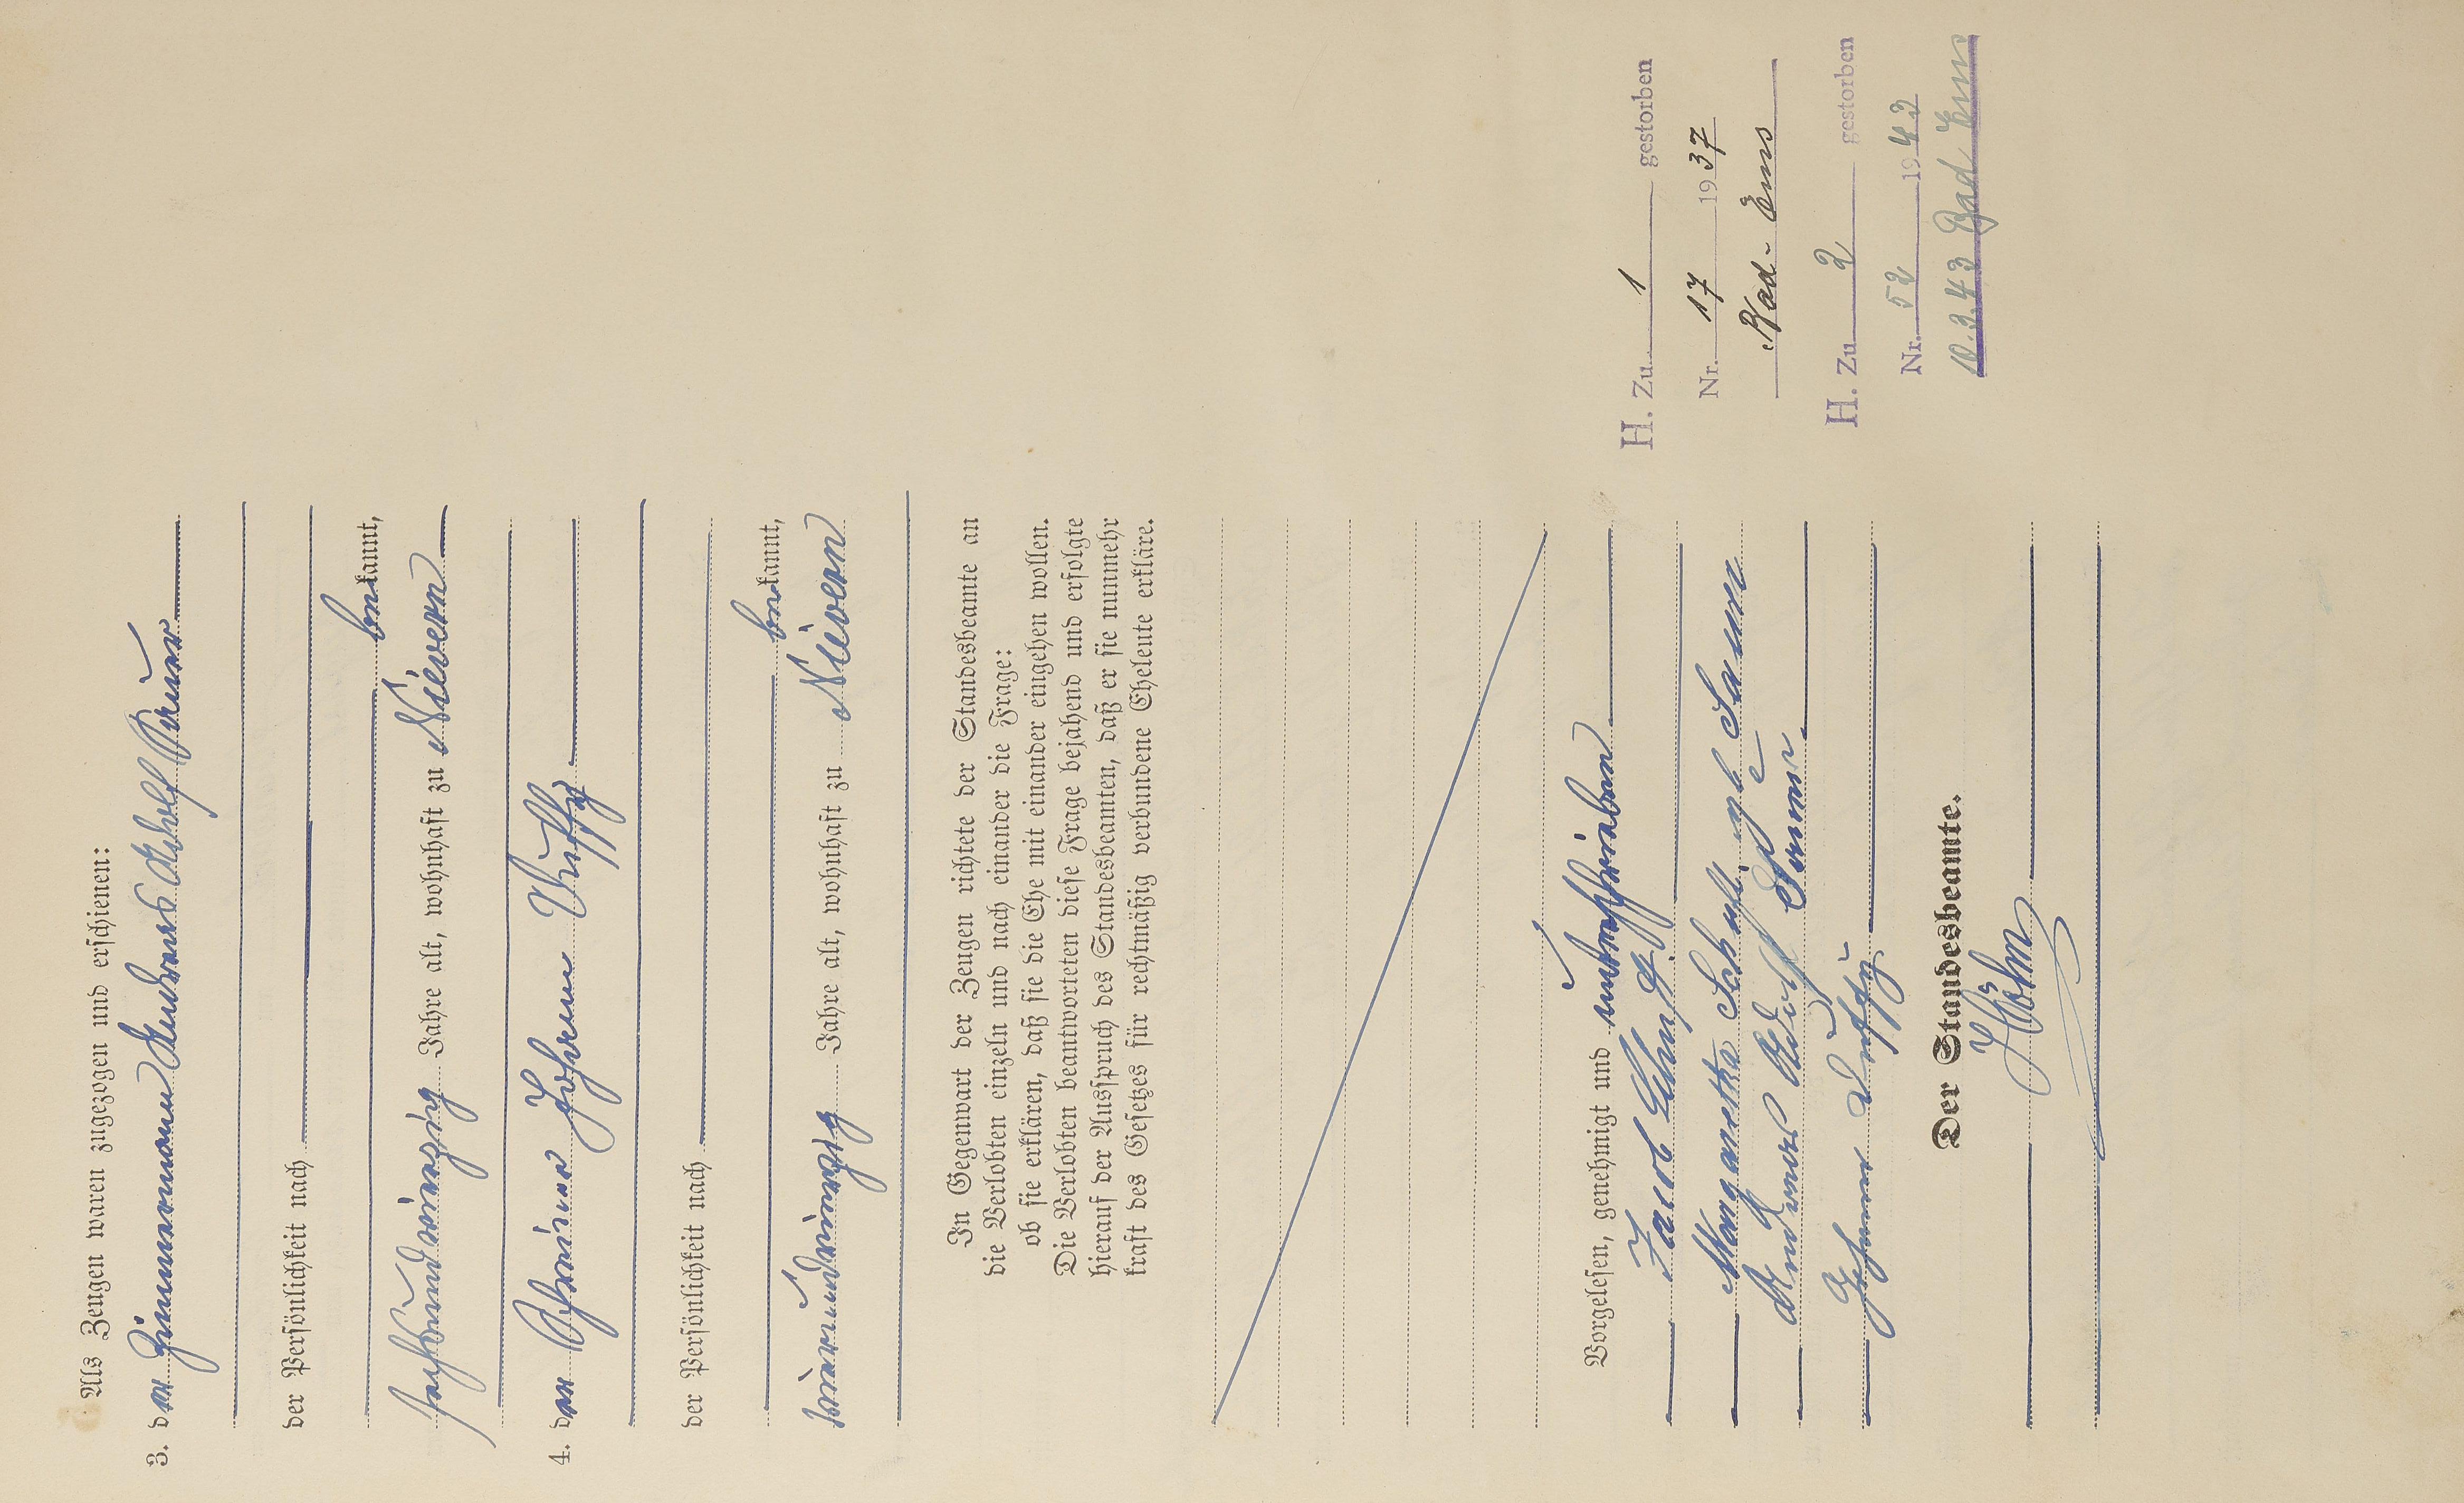 Als Zeugen waren zugezogen und erschienen:
3. der Zimmermann Andreas Adolf
der Persönlichkeit nach
bekannt,
sechsundvierzig Jahre alt, wohnhaft zu Nievern
4. der Schreiner Johann
der Persönlichkeit nach
bekannt,
vierunddreißig Jahre alt, wohnhaft zu Nievern
In Gegenwart der Zeugen richtete der Standesbeamte an
die Verlobten einzeln und nach einander die Frage:
ob sie erklären, daß sie die Ehe mit einander eingehen wollen.
Die Verlobten beantworteten diese Frage bejahend und erfolgte
hierauf der Ausspruch des Standesbeamten, daß er sie nunmehr
kraft des Gesetzes für rechtmäßig verbundene Eheleute erkläre.
Vorgelesen, genehmigt und unterschrieben
Jacob
Margaretha
Andreas Adolf
Johann
Der Standesbeamte.
H. Zu 1 gestorben
Nr. 17 1937
Bad-Ems
H. Zu 2 gestorben
Nr. 52 1943
10.3.43 Bad Ems